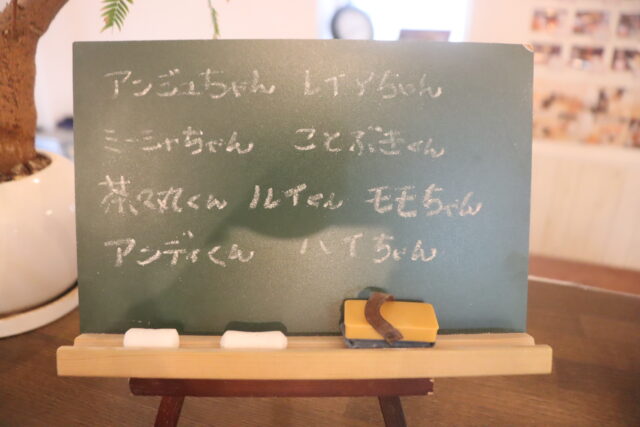 アンジュちゃん レイアちゃん
ミーシャちゃん ことぶきくん
茶々丸くん ルイくん モモちゃん
アンディくん ハイちゃん